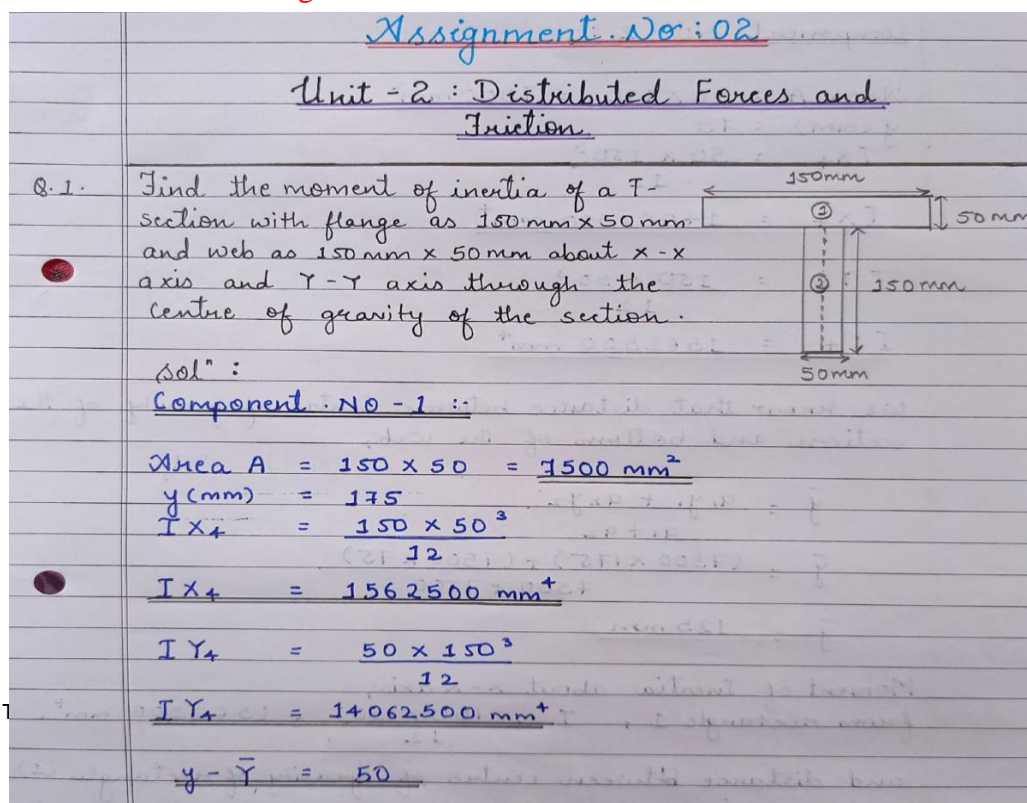 Assignment. No : 02
Unit - 2 : Distributed Forces and
Friction
Q. 1. Find the moment of inertia of a T-
section with flange as 150 mm x 50 mm
and web as 150 mm x 50 mm about x - x
axis and Y - Y axis through the
centre of gravity of the section.
150mm
① 50 mm
② 150mm
50mm
solⁿ :
Component. NO - 1 :-
Area A = 150 x 50 = 7500 mm²
y (mm) = 175
I X₄ = 150 x 50³
12
I X₄ = 1562500 mm⁴
I Y₄ = 50 x 150³
12
I Y₄ = 14062500 mm⁴
y - Ȳ = 50